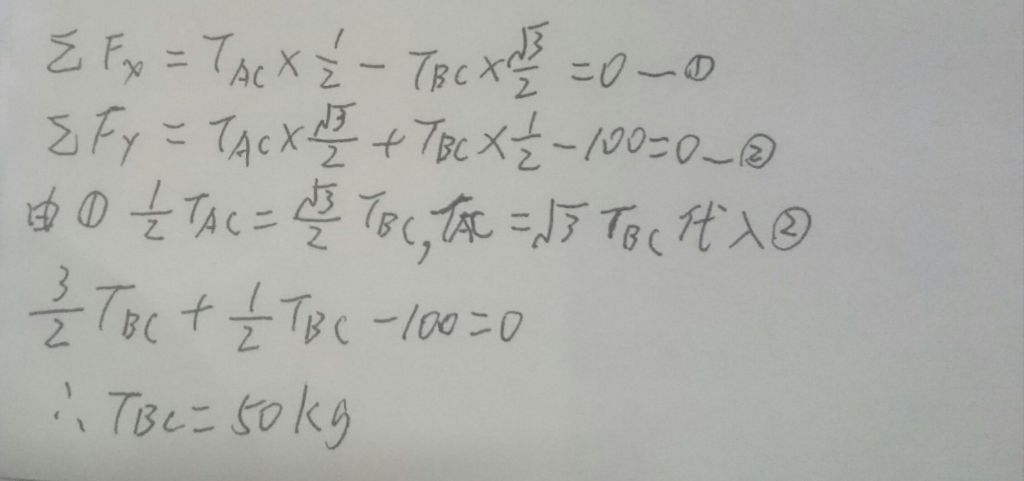 ΣFx = TAC × 1/2 − TBC × √3/2 = 0 — ①
ΣFY = TAC × √3/2 + TBC × 1/2 − 100 = 0 — ②
由① 1/2 TAC = √3/2 TBC, TAC = √3 TBC 代入②
3/2 TBC + 1/2 TBC − 100 = 0
∴ TBC = 50 kg